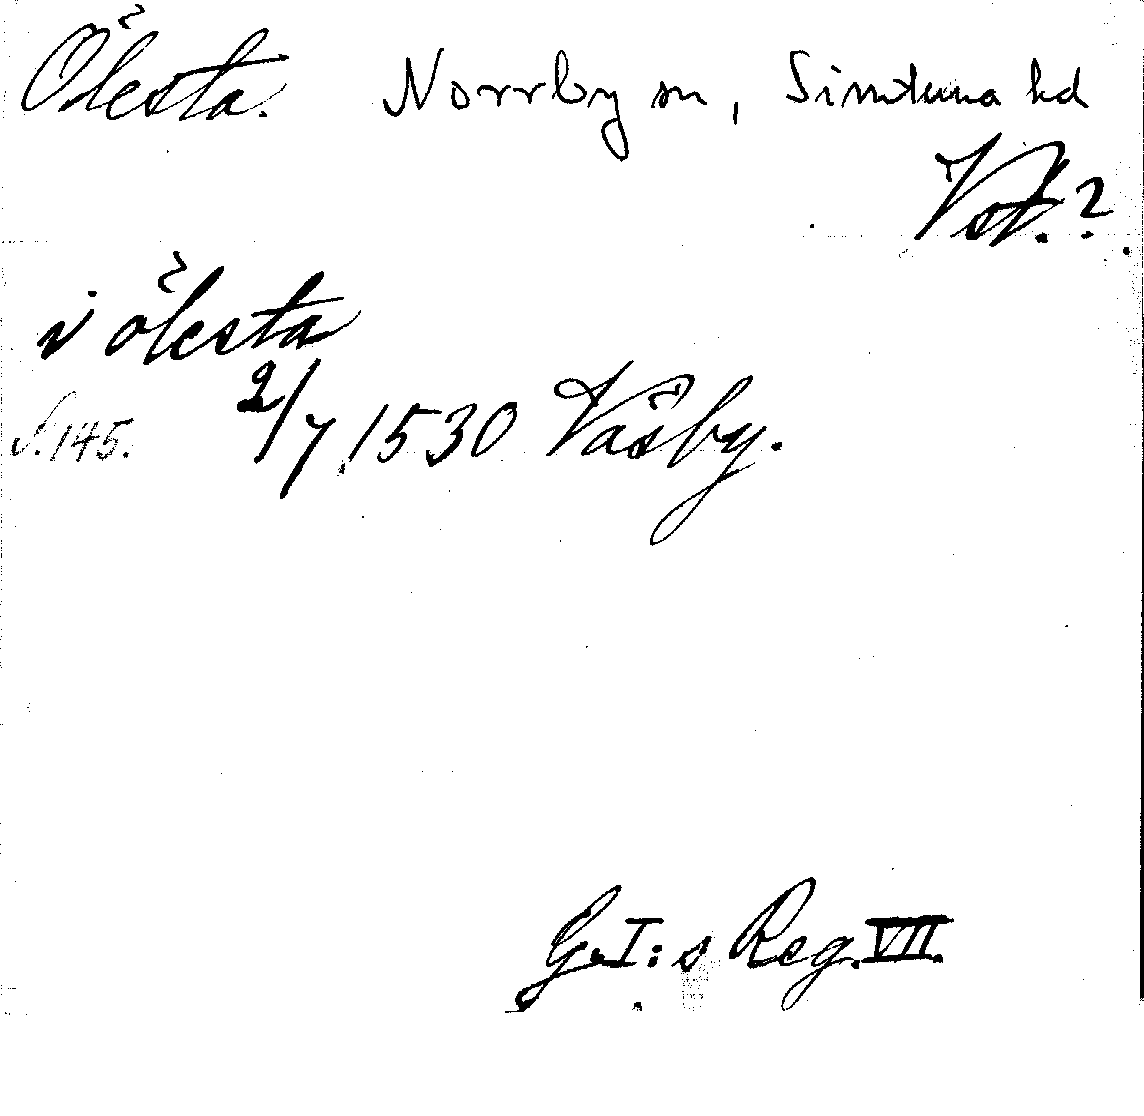 Ölesta. Norrby sn, Simtuna hd
Vst.?
i ölesta
S. 145. 2/7 1530 Väsby.
G. I:s Reg. VII.